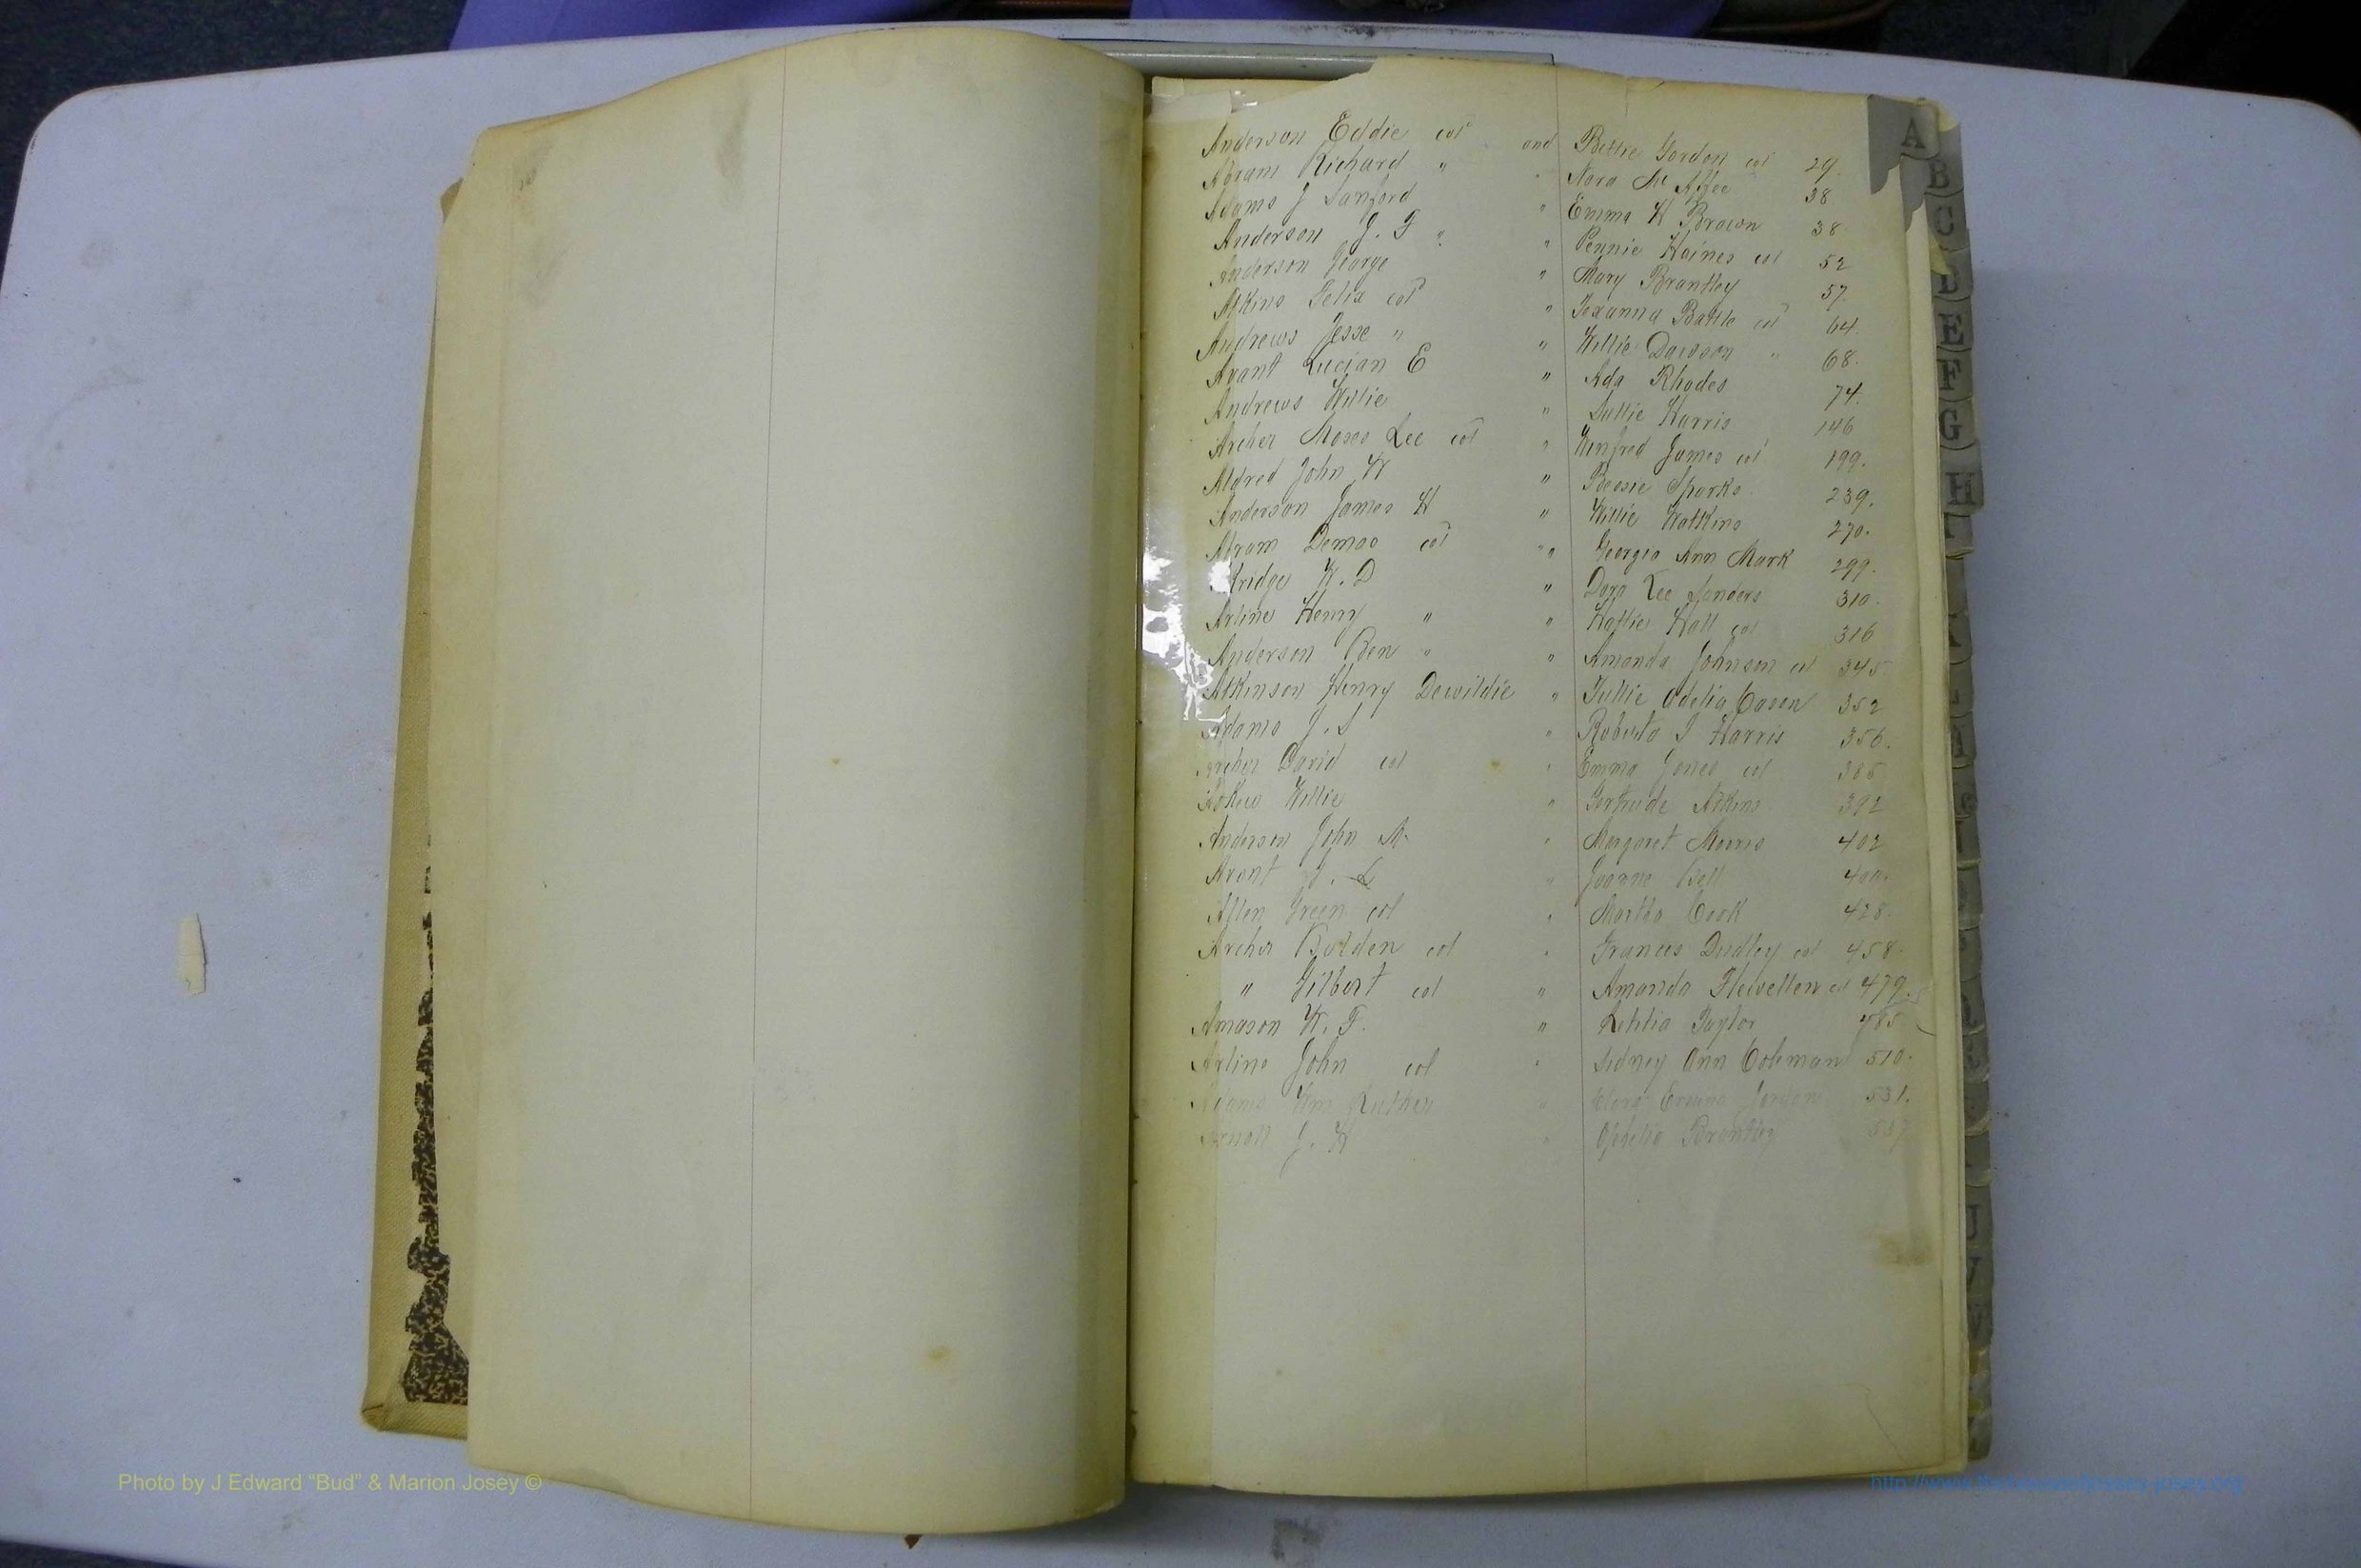 A
B
C
D
E
F
G
H
U
V
W
Anderson Eddie col and Bettie Gordon col 29.
Abram Richard " " Nora McAffee 38
Adams J Sanford " Emma H Brown 38
Anderson J. F " " Pennie Haines col 52
Anderson George " Mary Brantley 57.
Atkins Felix col " Texanna Battle col 64.
Andrews Jesse " " Willie Dawson " 68.
Avant Lucian E " Ada Rhodes 74.
Andrews Willie " Sallie Harris 146
Archer Moses Lee col " Winfred James col 199.
Aldred John W " Bessie Sparks 239.
Anderson James H " Willie Watkins 270.
Abram Demas col " Georgia Ann Mark 299.
W. D " Dora Lee Sanders 310.
Arline Henry " " Hattie Hall col 316
Anderson Ben " " Amanda Johnson col 345
Atkinson Henry Dewildie " Tullie Adelia Cason 352
Adams J. S " Roberta I Harris 356.
Archer David col " Emma Jones col
Willie " Gertrude Atkins 392
Anderson John M. " Margaret Morris 402
Avant J. L " Bell
Allen Green col " Martha Cook 428.
Archer Bolden col " Frances Dudley col 458.
" Gilbert col " Amanda Flewellen col 479.
Amason W. F. " Taylor 485
Arline John col " Sidney Ann Coleman 510.
Adams Wm Luther " Jordan 531.
J. W " Ophelia Brantley 537
Photo by J Edward “Bud” & Marion Josey ©